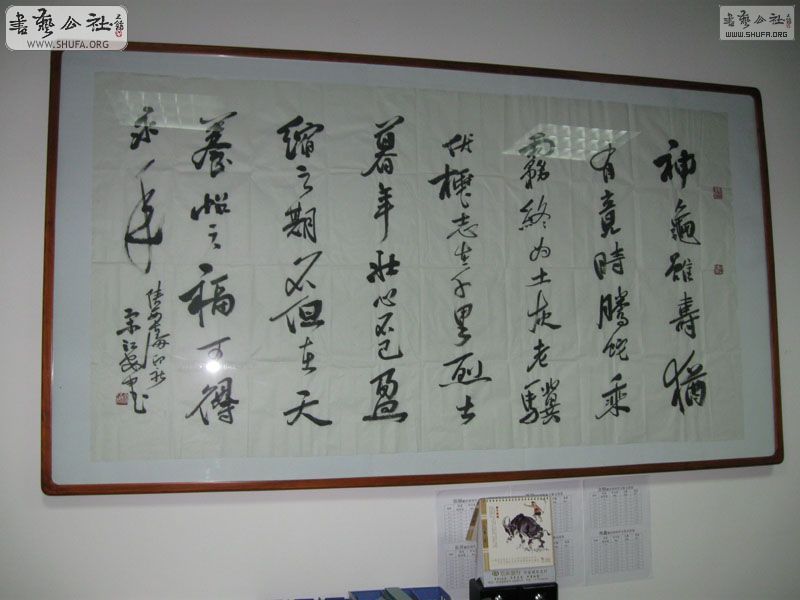 書藝公社
WWW.SHUFA.ORG
書藝公社
WWW.SHUFA.ORG
神龜雖壽猶
有竟時騰蛇乘
霧終为土灰老驥
伏櫪志在千里烈士
暮年壯心不已盈
縮之期不但在天
養怡之福可得
永年